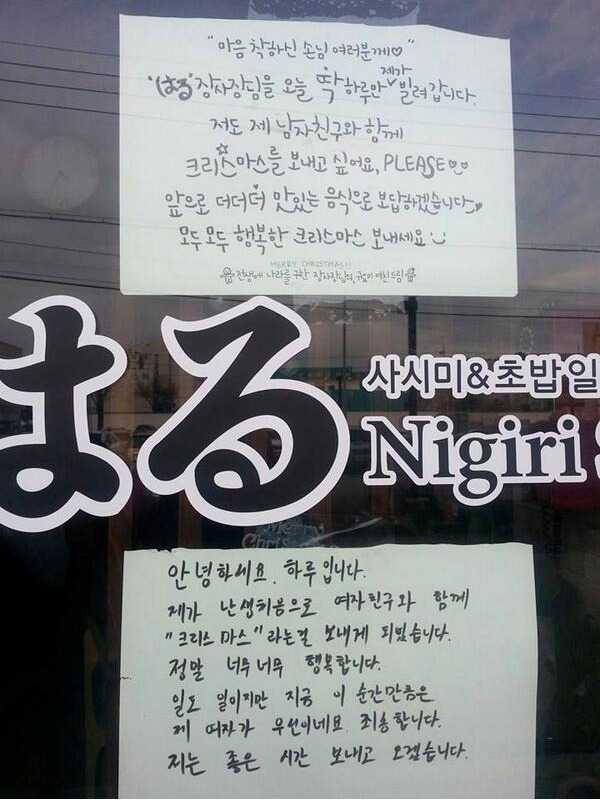 "마음 착하신 손님 여러분께♡"
'はる' 장사장님을 오늘 딱 하루만 제가 빌려갑니다.
저도 제 남자친구와 함께
크리스마스를 보내고 싶어요, PLEASE♡♡
앞으로 더더더 맛있는 음식으로 보답하겠습니다
모두모두 행복한 크리스마스 보내세요
MERRY CHRISTMAS!!
전생에 나라를 구한 장사장님의 여친드림
はる
사시미&초밥 일
Nigiri S
Merry
Chris
안녕하세요. 하루입니다.
제가 난생처음으로 여자친구와 함께
"크리스마스"라는걸 보내게 되었습니다.
정말 너무너무 행복합니다.
일도 일이지만 지금 이 순간만큼은
제 여자가 우선이네요 죄송합니다.
저는 좋은 시간 보내고 오겠습니다.